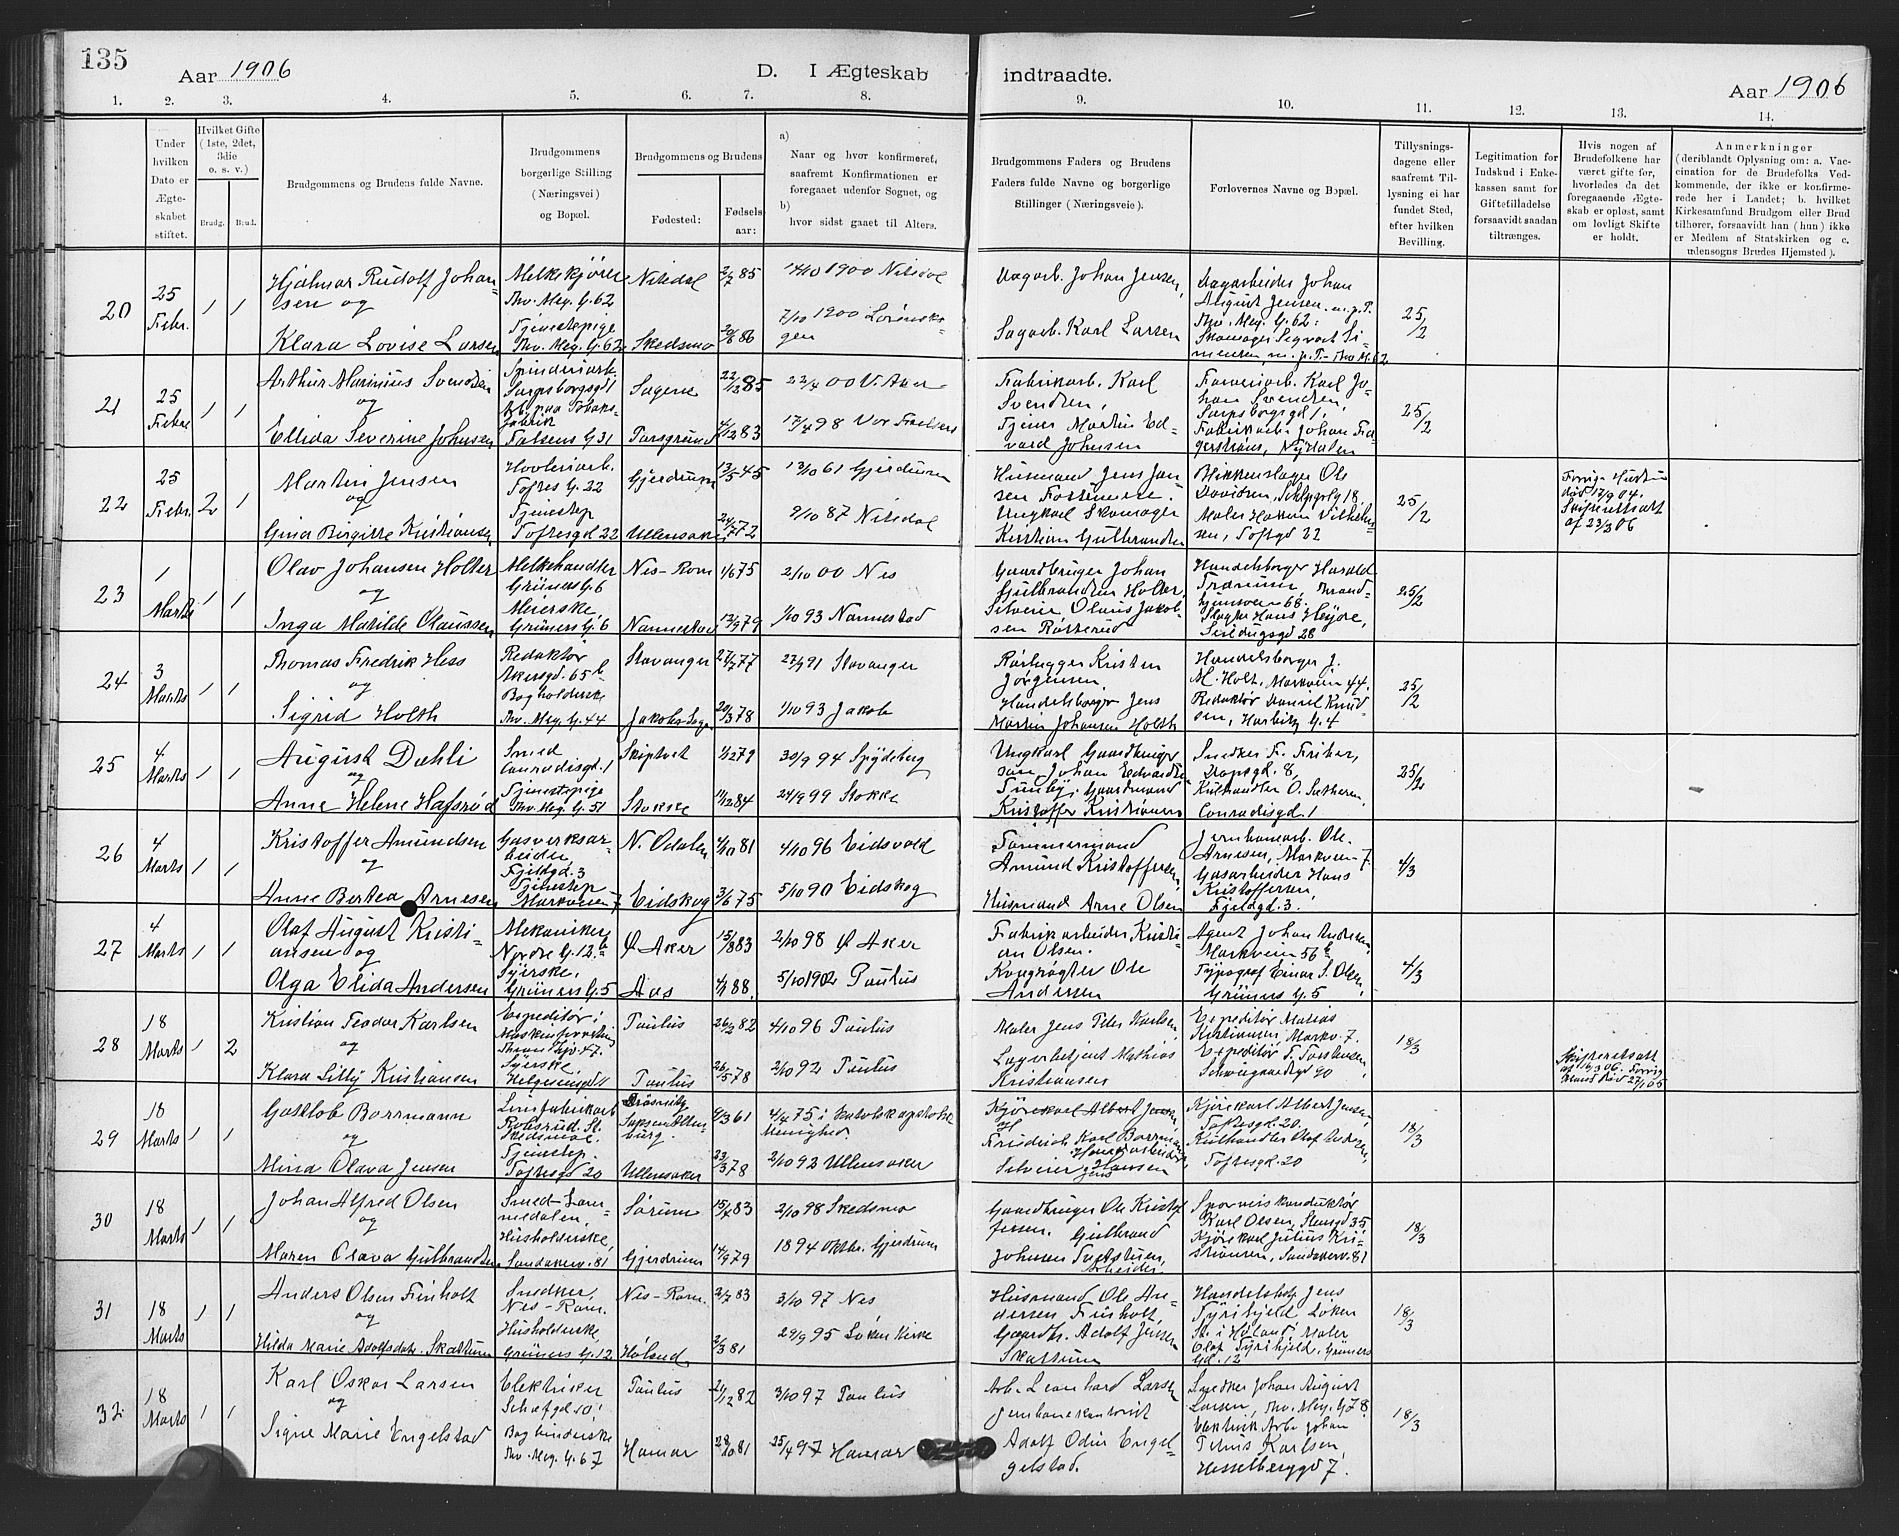 135
Aar 1906
D. I Ægteskab
indtraadte.
Aar 1906
1. 2. 3. 4. 5. 6. 7. 8. 9. 10. 11. 12. 13. 14.
Under hvilken Dato er Ægteskabet stiftet.
Hvilket Gifte (1ste, 2det, 3die o. s. v.)
Brudg. Brud.
Brudgommens og Brudens fulde Navne.
Brudgommens borgerlige Stilling (Næringsvei) og Bopæl.
Brudgommens og Brudens
Fødested: Fødselsaar:
a) Naar og hvor konfirmeret, saafremt Konfirmationen er foregaaet udenfor Sognet, og
b) hvor sidst gaaet til Alters.
Brudgommens Faders og Brudens Faders fulde Navne og borgerlige Stillinger (Næringsveie).
Forlovernes Navne og Bopæl.
Tillysningsdagene eller saafremt Tillysning ei har fundet Sted, efter hvilken Bevilling.
Legitimation for Indskud i Enkekassen samt for Giftetilladelse forsaavidt saadan tiltrænges.
Hvis nogen af Brudefolkene har været gifte før, hvorledes da det foregaaende Ægteskab er opløst, samt om lovligt Skifte er holdt.
Anmerkninger (deriblandt Oplysning om: a. Vaccination for de Brudefolks Vedkommende, der ikke er konfirmerede her i Landet; b. hvilket Kirkesamfund Brudgom eller Brud tilhører, forsaavidt han (hun) ikke er Medlem af Statskirken og c. udensogns Brudes Hjemsted).
20
25 Febr.
1 1
Hjalmar Rudolf Johansen og
Klara Lovise Larsen
Melkekjører
Thv. Mey. G. 62
Tjenestepige
Thv. Mey. G. 62
Nitedal
Skedsmo
2/7 85
20/6 86
14/10 1900 Nitedal
7/10 1900 Lørenskogen
Dagarb. Johan Jensen,
Sagarb. Karl Larsen
Dagarbeider Johan
August Jensen
Thv. Mey. G. 62:
25/2
21
25 Febr.
1 1
Arthur Marinius Svendsen
og
Ellida Severine Johnsen
Spinderiarb.
Sarpsborggd 1
Arb. paa Tobaksfabrik
Falsens G. 31
Sagene
Porsgrund
22/12 85
4/12 83
22/4 00 V. Aker
17/4 98 Vor Frelsers
Fabrikarb. Karl
Svendsen,
Martin Edvard Johnsen
Farveriarb. Karl Johan Svendsen,
Sarpsborggd 1,
Fabrikarb. Johan Fagerstrøm, Nydalen
25/2
22
25 Febr.
2 1
Martin Jensen
og
Gina Birgitte Kristiansen
Høvleriarb.
Toftes G. 22
Tjenestep
Toftesgd 22
Gjerdrum
Ullensaker
13/5 45
24/7 72
13/10 61 Gjerdrum
9/10 87 Nitedal
Husmand Jens Jansen
Ungkarl Skomager
Kristian Gulbrandsen
Blikkenslager Ole
Davidsen,
Maler Hakon Vilhelmsen, Toftgd 22
25/2
Forrige Hustru
død 17/9 04.
Skifteattest
af 23/2 06
23
1 Marts
1 1
Olav Johansen Holter
og
Inga Matilde Olaussen
Melkehandler
Grüners G. 6
Meierske,
Grüners G. 6
Nes-Rom
Nannestad
1/6 75
13/9 79
2/10 00 Nes
1/10 93 Nannestad
Gaardbruger Johan
Gulbrandsen Holter,
Selveier Olaus Jakobsen
Handelsborger Harald
Slagter Hans Høyore,
25/2
24
3 Marts
1 1
Thomas Fredrik Hess
og
Sigrid Holth
Redaktør
Akersgd. 65 b
Bogholderske
Thv. Mey. G. 44
Stavanger
Jakobs Sogn
27/7 77
20/3 78
27/9 91 Stavanger
1/10 93 Jakob
Rørlægger Kristen
Jörgensen
Handelsborger Jens
Martin Johansen Holth
Handelsborger J.
M. Holt, Markvein 44.
Redaktør Daniel Knudsen, Harbitz G. 4
25/2
25
4 Marts
1 1
August Dahli
og
Anne Helene Hafsrød
Smed
Conradisgd. 1
Tjenestepige
Thv. Mey. G. 51
Skiptvet
Stokke
1/12 79
11/12 84
30/9 94 Spydeberg
24/9 99 Stokke
Johan Edvardsen
Gaardmand
Kristoffer Kristiansen
Snedker
8,
Kulhandler
Conradisgd. 1
25/2
26
4 Marts
1 1
Kristoffer Amundsen
og
Anne Bertea Arnesen
Gasverksarbeider,
Fjeldgd. 3
Tjenestep
Markveien 7
N. Odalen
Eidskog
4/10 81
3/6 75
4/10 96 Eidsvold
5/10 90 Eidskog
Tømmermand
Amund Kristoffersen,
Husmand Arne Olsen
Jernbanearb. Ole
Arnesen, Markvein 7.
Gasarbeider Hans
Kristoffersen,
Fjeldgd. 3.
4/3
27
4 Marts
1 1
Olaf August Kristiansen og
Olga Elida Andersen
Mekaniker
Nordre G. 12 b
Syerske,
Grüners G. 5
Ø Aker
Aas
15/8 83
4/1 88.
2/10 98 Ø Aker
5/10 1902 Paulus
Fabrikarbeider Kristian Olsen.
Kvægrøgter Ole
Andersen
Agent Johan Andersen,
Markvein 56 b
Typograf Einar S. Olsen,
Grüners G. 5
4/3
28
18 Marts
1 2
Kristian Teodor Karlsen
og
Klara Lilly Kristiansen
Expeditør i
Syerske,
Paulus
Paulus
26/2 82
26/5 78
4/10 96 Paulus
2/10 92 Paulus
Maler Jens Peter Karlsen,
Lagerbetjent Mathias
Kristiansen
Expeditør Matias
Kristiansen, Markv. 7.
Expeditør T. Torstensen,
Schweigaardsgd 90
18/3
Skifteattest
af 16/3 06. Forrige
Mand død 27/1 05
29
18 Marts
1 1
Gottlob Borrmann
og
Mina Olava Jensen
Linfabrikarb
Skedsmo.
Tjenestep,
Toftesgd 20
Sachsen Altenburg.
Ullensaker
9/3 61
23/3 78
4/4 75 i Katolskapostolske
Menighed.
2/10 92 Ullensaker
Friedrich Karl Borrmann
Selveier Jens Hansen
Kjørekarl Albert Jensen,
Toftesgd. 20.
Kulhandler Olaf Andersen,
Toftesgd. 20
18/3
30
18 Marts
1 1
Johan Alfred Olsen
og
Maren Olava Gulbrandsen
Smed-Lommedalen,
Husholderske,
Sandakerv. 81
Sørum
Gjerdrum
15/7 83
14/9 79
2/10 98 Skedsmo
1894 Oktbr. Gjerdrum
Gaardbruger Ole Kristoffersen. Gulbrand
Johnsen Tveitstuen,
Arbeider
Sporveiskonduktør
Karl Olsen, Stensgd 35,
Kjørekarl Julius Kristiansen, Sandakerv. 81
18/3
31
18 Marts
1 1
Anders Olsen Finholt
og
Hilda Marie Adolfsdatr. Skattum
Snedker,
Nes-Rom.
Husholderske,
Grüners G. 12
Nes-Rom.
Høland
2/7 83
2/3 81
3/10 97 Nes
29/9 95 Løken Kirke
Husmand Ole Andersen Finholt,
Gaardbr. Adolf Jensen
Skattum
Handelsbetj. Jens
Tyrihjeld, Løken
St. i Høland, Maler
Olaf Tyrihjeld, Grüners
Gd. 12
18/3
32
18 Marts
1 1
Karl Oskar Larsen
og
Signe Marie Engelstad
Elektriker
Schæfgd 10,
Bogbinderske
Thv. Mey. G. 67
Paulus
Hamar
21/12 82
28/10 81
3/10 97 Paulus
25/4 97 Hamar
Arb. Leonhard Larsen
Jernbanekontorist
Adolf Odin Engelgelstad.
Snedker Johan August
Larsen, Thv. Mey. G 78.
Elektrik Arb. Johan
Petrus Karlsen,
Hesselberggd 7.
18/3